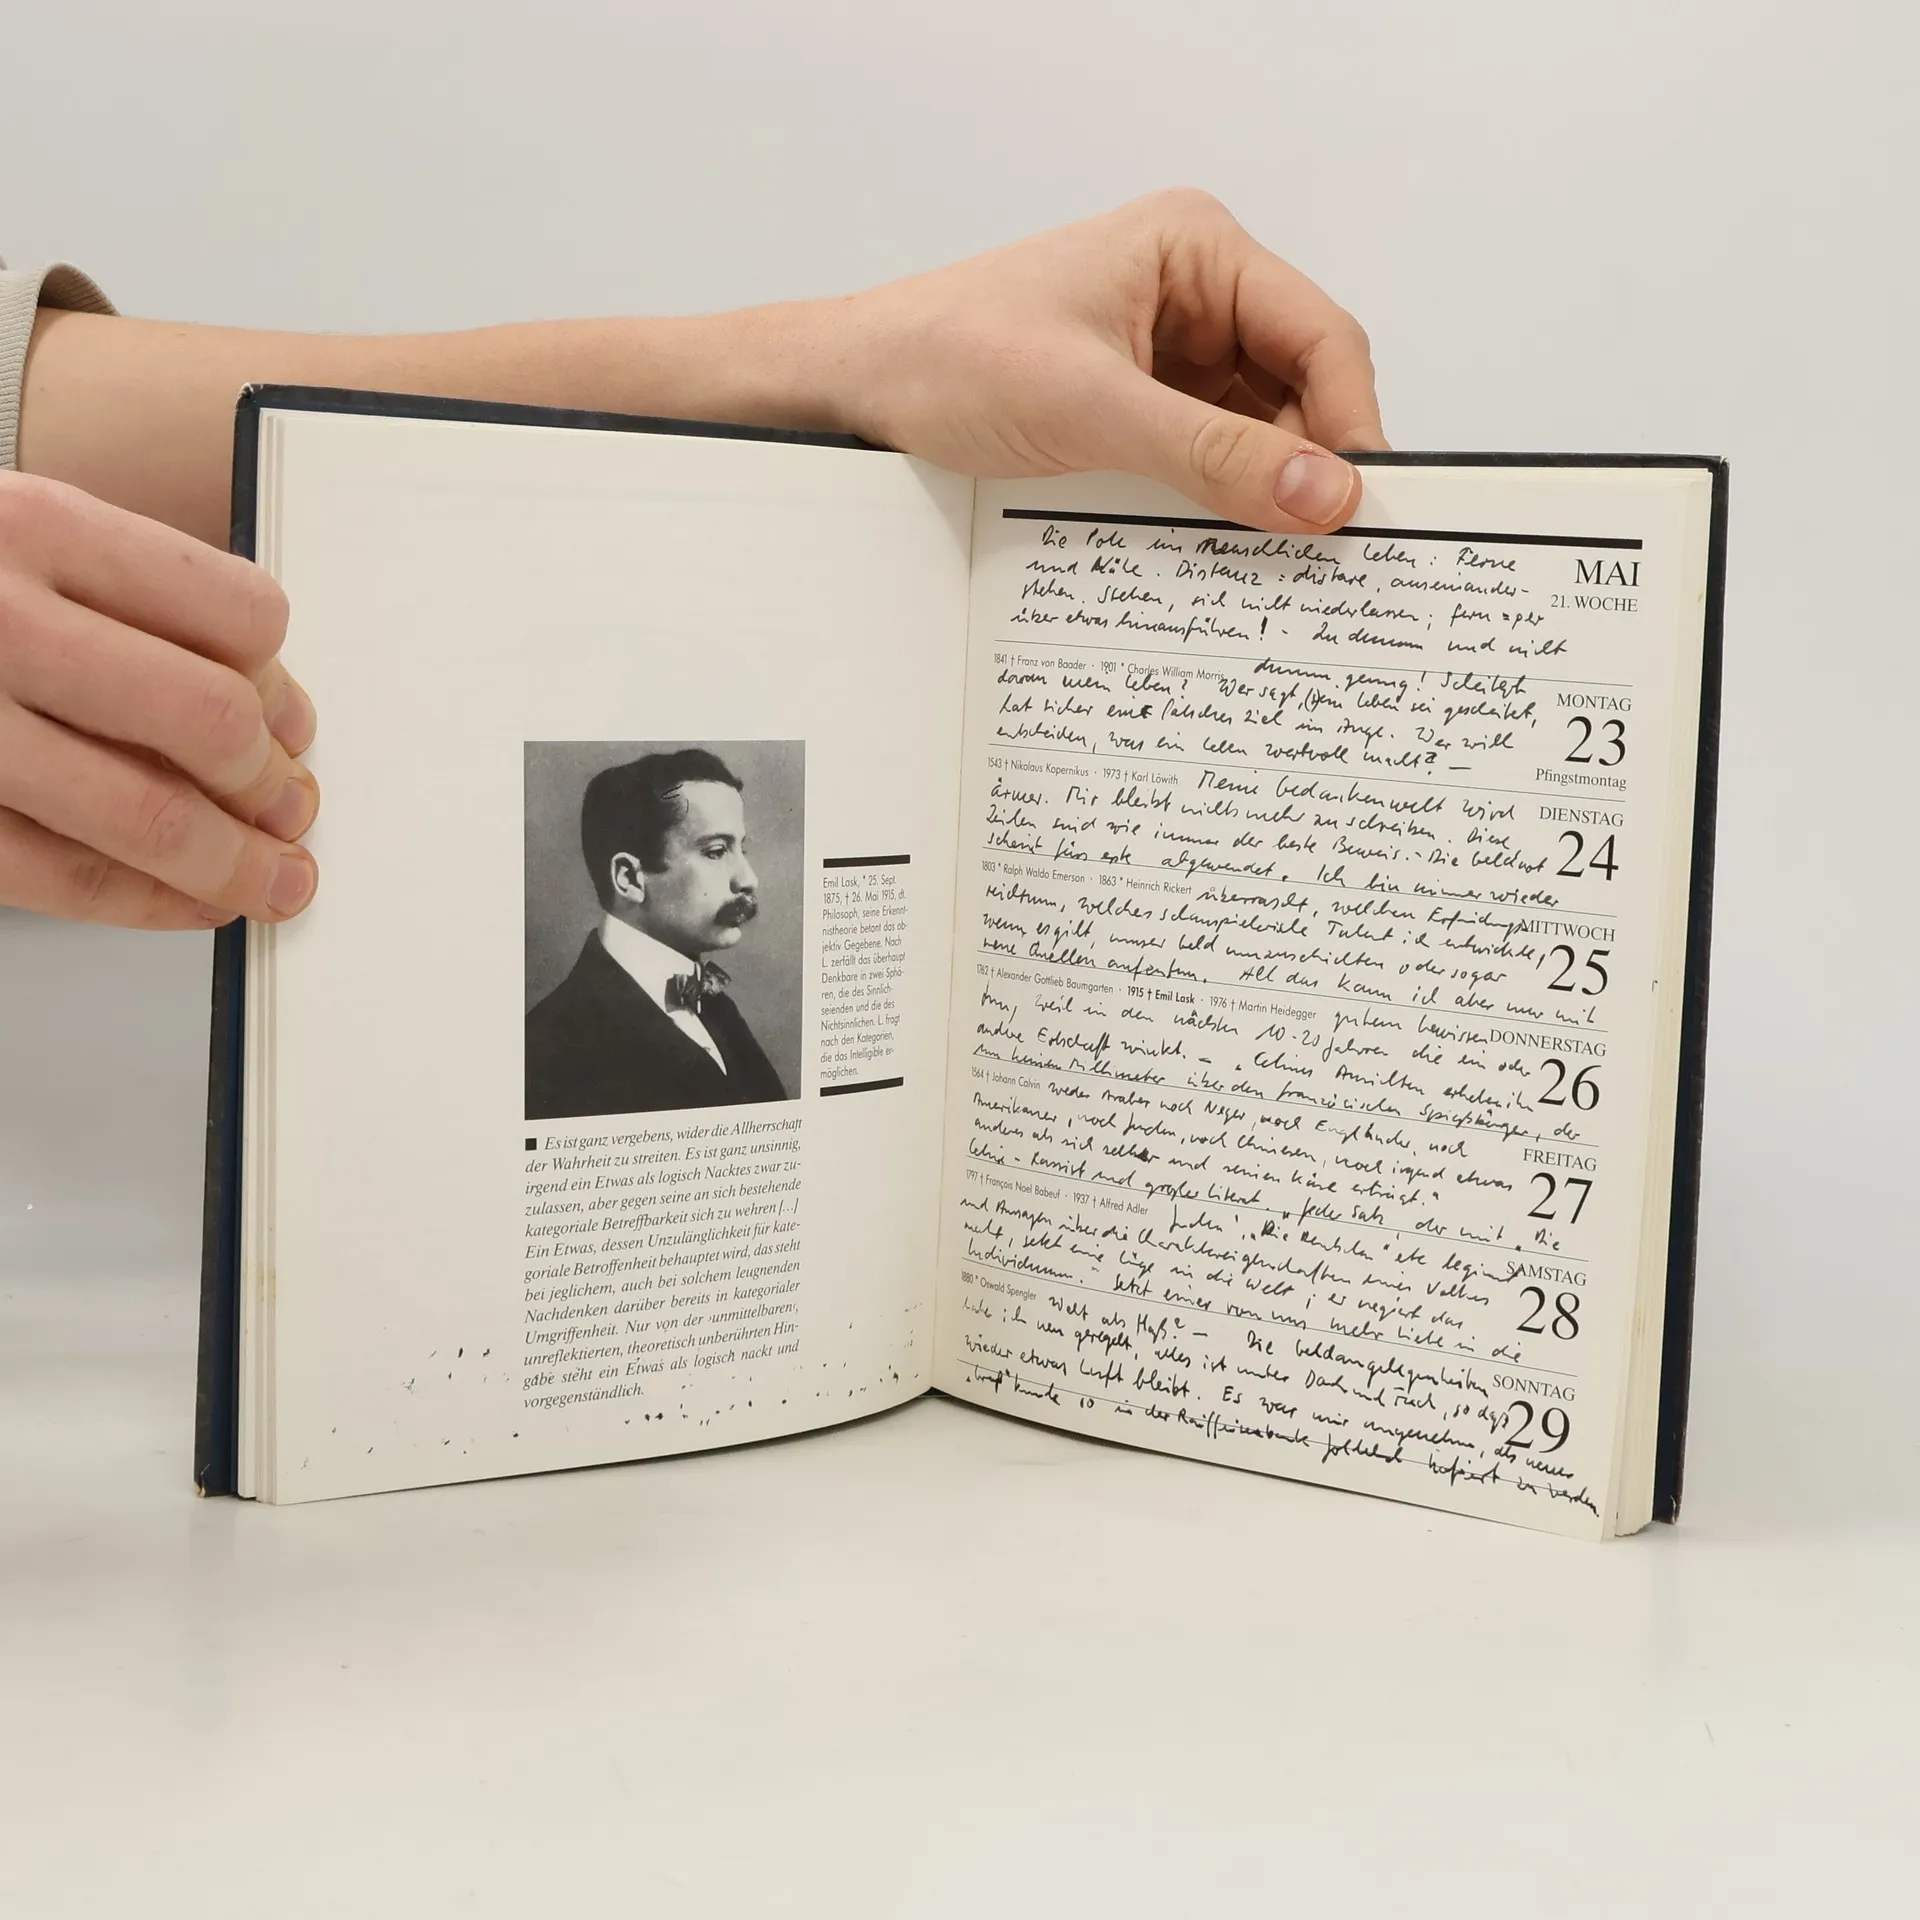 Emil Lask, * 25. Sept.
1875, † 26. Mai 1915, dt.
Philosoph, seine Erkennt-
nistheorie betont das ob-
jektiv Gegebene. Nach
L. zerfällt das überhaupt
Denkbare in zwei Sphä-
ren, die des Sinnlich-
seienden und die des
Nichtsinnlichen. L. fragt
nach den Kategorien,
die das Intelligible er-
möglichen.
■ Es ist ganz vergebens, wider die Allherrschaft
der Wahrheit zu streiten. Es ist ganz unsinnig,
irgend ein Etwas als logisch Nacktes zwar zu-
zulassen, aber gegen seine an sich bestehende
kategoriale Betreffbarkeit sich zu wehren [...]
Ein Etwas, dessen Unzulänglichkeit für kate-
goriale Betroffenheit behauptet wird, das steht
bei jeglichem, auch bei solchem leugnenden
Nachdenken darüber bereits in kategorialer
Umgriffenheit. Nur von der ›unmittelbaren‹,
unreflektierten, theoretisch unberührten Hin-
gabe steht ein Etwas als logisch nackt und
vorgegenständlich.
MAI
21. WOCHE
Die Pole im menschlichen Leben: Ferne
und Nähe. Distanz = distare, auseinander-
stehen. Stehen, sich nicht niederlassen; fern = per
über etwas hinausführen! - Zu dumm und nicht
dumm genug! Scheitert
1841 † Franz von Baader · 1901 * Charles William Morris
daran mein Leben? Wer sagt, sein Leben sei gescheitert,
hat sicher ein falsches Ziel im Auge. Wer will
entscheiden, was ein Leben wertvoll macht? —
MONTAG
23
Pfingstmontag
1543 † Nikolaus Kopernikus · 1973 † Karl Löwith
Meine Gedankenwelt wird
ärmer. Mir bleibt nichts mehr zu schreiben. Diese
Zeilen sind wie immer der beste Beweis. - Die Geldnot
scheint fürs erste abgewendet. Ich bin immer wieder
DIENSTAG
24
1803 * Ralph Waldo Emerson · 1863 * Heinrich Rickert
überrascht, welchen Erfindungs-
reichtum, welches schauspielerische Talent ich entwickle,
wenn es gilt, unser Geld umzuschichten oder sogar
neue Quellen aufzutun. All das kann ich aber nur mit
MITTWOCH
25
1762 † Alexander Gottlieb Baumgarten · 1915 † Emil Lask · 1976 † Martin Heidegger
gutem Gewissen
tun, weil in den nächsten 10-20 Jahren die ein oder
andere Erbschaft winkt. — „Célines Ansichten erheben ihn
um keinen Millimeter über den französischen Spießbürger, der
DONNERSTAG
26
1564 † Johann Calvin
weder Araber noch Neger, noch Engländer, noch
Amerikaner, noch Juden, noch Chinesen, noch irgend etwas
anderes als sich selber und seinen Käse erträgt."
Céline - Rassist und großer Literat. „Jeder Satz, der mit „Die
FREITAG
27
1797 † François Noel Babeuf · 1937 † Alfred Adler
Juden", „Die Deutschen" etc beginnt
und Aussagen über die Charaktereigenschaften eines Volkes
macht, setzt eine Lüge in die Welt; er negiert das
Individuum." Setzt einer von uns mehr Liebe in die
SAMSTAG
28
1880 * Oswald Spengler
Welt als Haß? — Die Geldangelegenheiten
habe ich neu geregelt, alles ist unter Dach und Fach, so daß
wieder etwas Luft bleibt. Es war mir unangenehm, als neuer
kunde so in der Raiffeisenbank hofiert zu werden.
SONNTAG
29